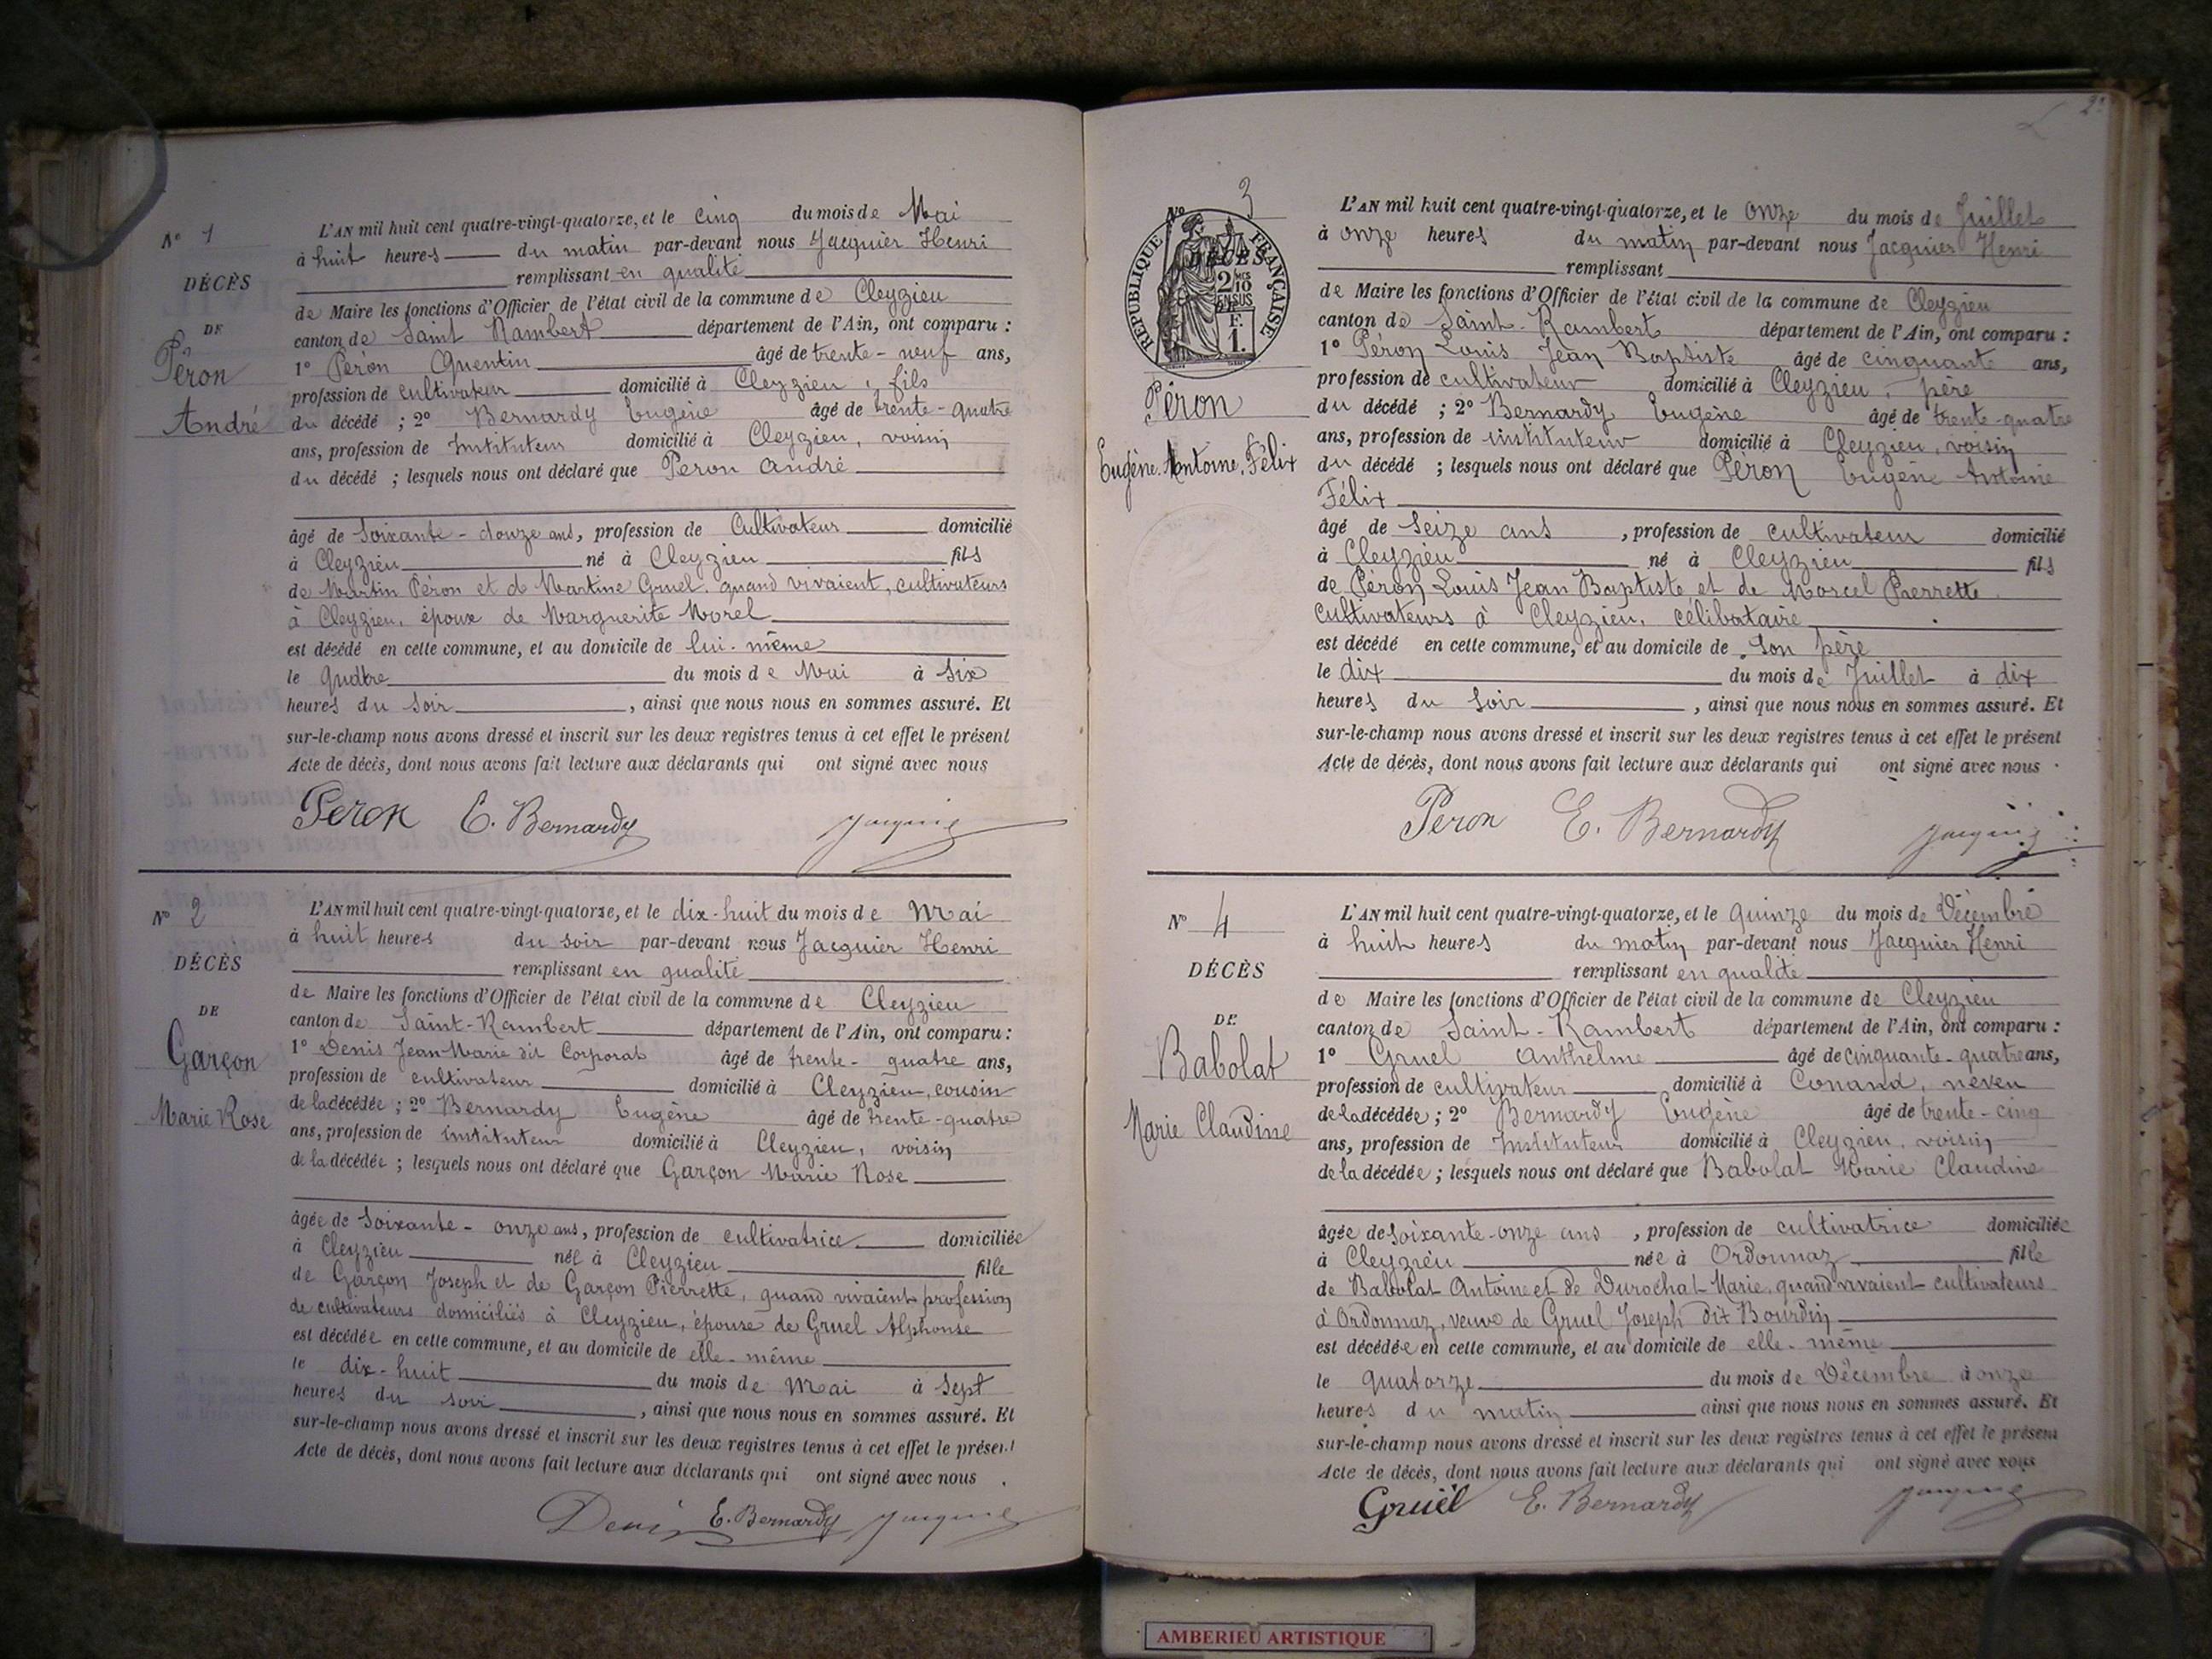 N° 1
DÉCÈS
DE
Péron
André
L'AN mil huit cent quatre-vingt-quatorze, et le cinq du mois de Mai
à huit heures du matin par-devant nous Jacquier Henri
remplissant en qualité
de Maire les fonctions d'Officier de l'état civil de la commune de Cleyzieu
canton de Saint Rambert département de l'Ain, ont comparu :
1° Péron Quentin âgé de trente-neuf ans,
profession de cultivateur domicilié à Cleyzieu, fils
du décédé ; 2° Bernardy Eugène âgé de trente-quatre
ans, profession de Instituteur domicilié à Cleyzieu, voisin
du décédé ; lesquels nous ont déclaré que Péron André
âgé de Soixante-douze ans, profession de Cultivateur domicilié
à Cleyzieu né à Cleyzieu fils
de Martin Péron et de Martine Gruel, quand vivaient, cultivateurs
à Cleyzieu, époux de Marguerite Morel
est décédé en cette commune, et au domicile de lui-même
le quatre du mois de Mai à six
heures du soir, ainsi que nous nous en sommes assuré. Et
sur-le-champ nous avons dressé et inscrit sur les deux registres tenus à cet effet le présent
Acte de décès, dont nous avons fait lecture aux déclarants qui ont signé avec nous
Peron E. Bernardy Jacquier
N° 2
DÉCÈS
DE
Garçon
Marie Rose
L'AN mil huit cent quatre-vingt-quatorze, et le dix-huit du mois de Mai
à huit heures du soir par-devant nous Jacquier Henri
remplissant en qualité
de Maire les fonctions d'Officier de l'état civil de la commune de Cleyzieu
canton de Saint-Rambert département de l'Ain, ont comparu :
1° Denis Jean Marie dit Corporat âgé de trente-quatre ans,
profession de cultivateur domicilié à Cleyzieu, cousin
de la décédée ; 2° Bernardy Eugène âgé de trente-quatre
ans, profession de instituteur domicilié à Cleyzieu, voisin
de la décédée ; lesquels nous ont déclaré que Garçon Marie Rose
âgée de Soixante-onze ans, profession de cultivatrice domiciliée
à Cleyzieu née à Cleyzieu fille
de Garçon Joseph et de Garçon Pierrette, quand vivaient profession
de cultivateurs domiciliés à Cleyzieu, épouse de Gruel Alphonse
est décédée en cette commune, et au domicile de elle-même
le dix-huit du mois de Mai à sept
heures du soir, ainsi que nous nous en sommes assuré. Et
sur-le-champ nous avons dressé et inscrit sur les deux registres tenus à cet effet le présent
Acte de décès, dont nous avons fait lecture aux déclarants qui ont signé avec nous.
Denis E. Bernardy Jacquier
N° 3
RÉPUBLIQUE FRANÇAISE
DÉCÈS
2/10 EN SUS
F. 1.
Péron
Eugène, Antoine, Félix
L'AN mil huit cent quatre-vingt-quatorze, et le onze du mois de Juillet
à onze heures du matin par-devant nous Jacquier Henri
remplissant
de Maire les fonctions d'Officier de l'état civil de la commune de Cleyzieu
canton de Saint-Rambert département de l'Ain, ont comparu :
1° Péron Louis Jean Baptiste âgé de cinquante ans,
profession de cultivateur domicilié à Cleyzieu, père
du décédé ; 2° Bernardy Eugène âgé de trente-quatre
ans, profession de instituteur domicilié à Cleyzieu, voisin
du décédé ; lesquels nous ont déclaré que Péron Eugène Antoine
Félix
âgé de Seize ans, profession de cultivateur domicilié
à Cleyzieu né à Cleyzieu fils
de Péron Louis Jean Baptiste et de Marcel Pierrette
cultivateurs à Cleyzieu, célibataire
est décédé en cette commune, et au domicile de Son père
le dix du mois de Juillet à dix
heures du soir, ainsi que nous nous en sommes assuré. Et
sur-le-champ nous avons dressé et inscrit sur les deux registres tenus à cet effet le présent
Acte de décès, dont nous avons fait lecture aux déclarants qui ont signé avec nous.
Peron E. Bernardy Jacquier
N° 4
DÉCÈS
DE
Babolat
Marie Claudine
L'AN mil huit cent quatre-vingt-quatorze, et le quinze du mois de Décembre
à huit heures du matin par-devant nous Jacquier Henri
remplissant en qualité
de Maire les fonctions d'Officier de l'état civil de la commune de Cleyzieu
canton de Saint-Rambert département de l'Ain, ont comparu :
1° Gruel Anthelme âgé de cinquante-quatre ans,
profession de cultivateur domicilié à Conand, neveu
de la décédée ; 2° Bernardy Eugène âgé de trente-cinq
ans, profession de Instituteur domicilié à Cleyzieu, voisin
de la décédée ; lesquels nous ont déclaré que Babolat Marie Claudine
âgée de soixante-onze ans, profession de cultivatrice domiciliée
à Cleyzieu née à Ordonnaz fille
de Babolat Antoine et de Durochat Marie, quand vivaient cultivateurs
à Ordonnaz, veuve de Gruel Joseph dit Bourdin
est décédée en cette commune, et au domicile de elle-même
le quatorze du mois de Décembre à onze
heures du matin ainsi que nous nous en sommes assuré. Et
sur-le-champ nous avons dressé et inscrit sur les deux registres tenus à cet effet le présent
Acte de décès, dont nous avons fait lecture aux déclarants qui ont signé avec nous
Gruël E. Bernardy Jacquier
AMBERIEU ARTISTIQUE